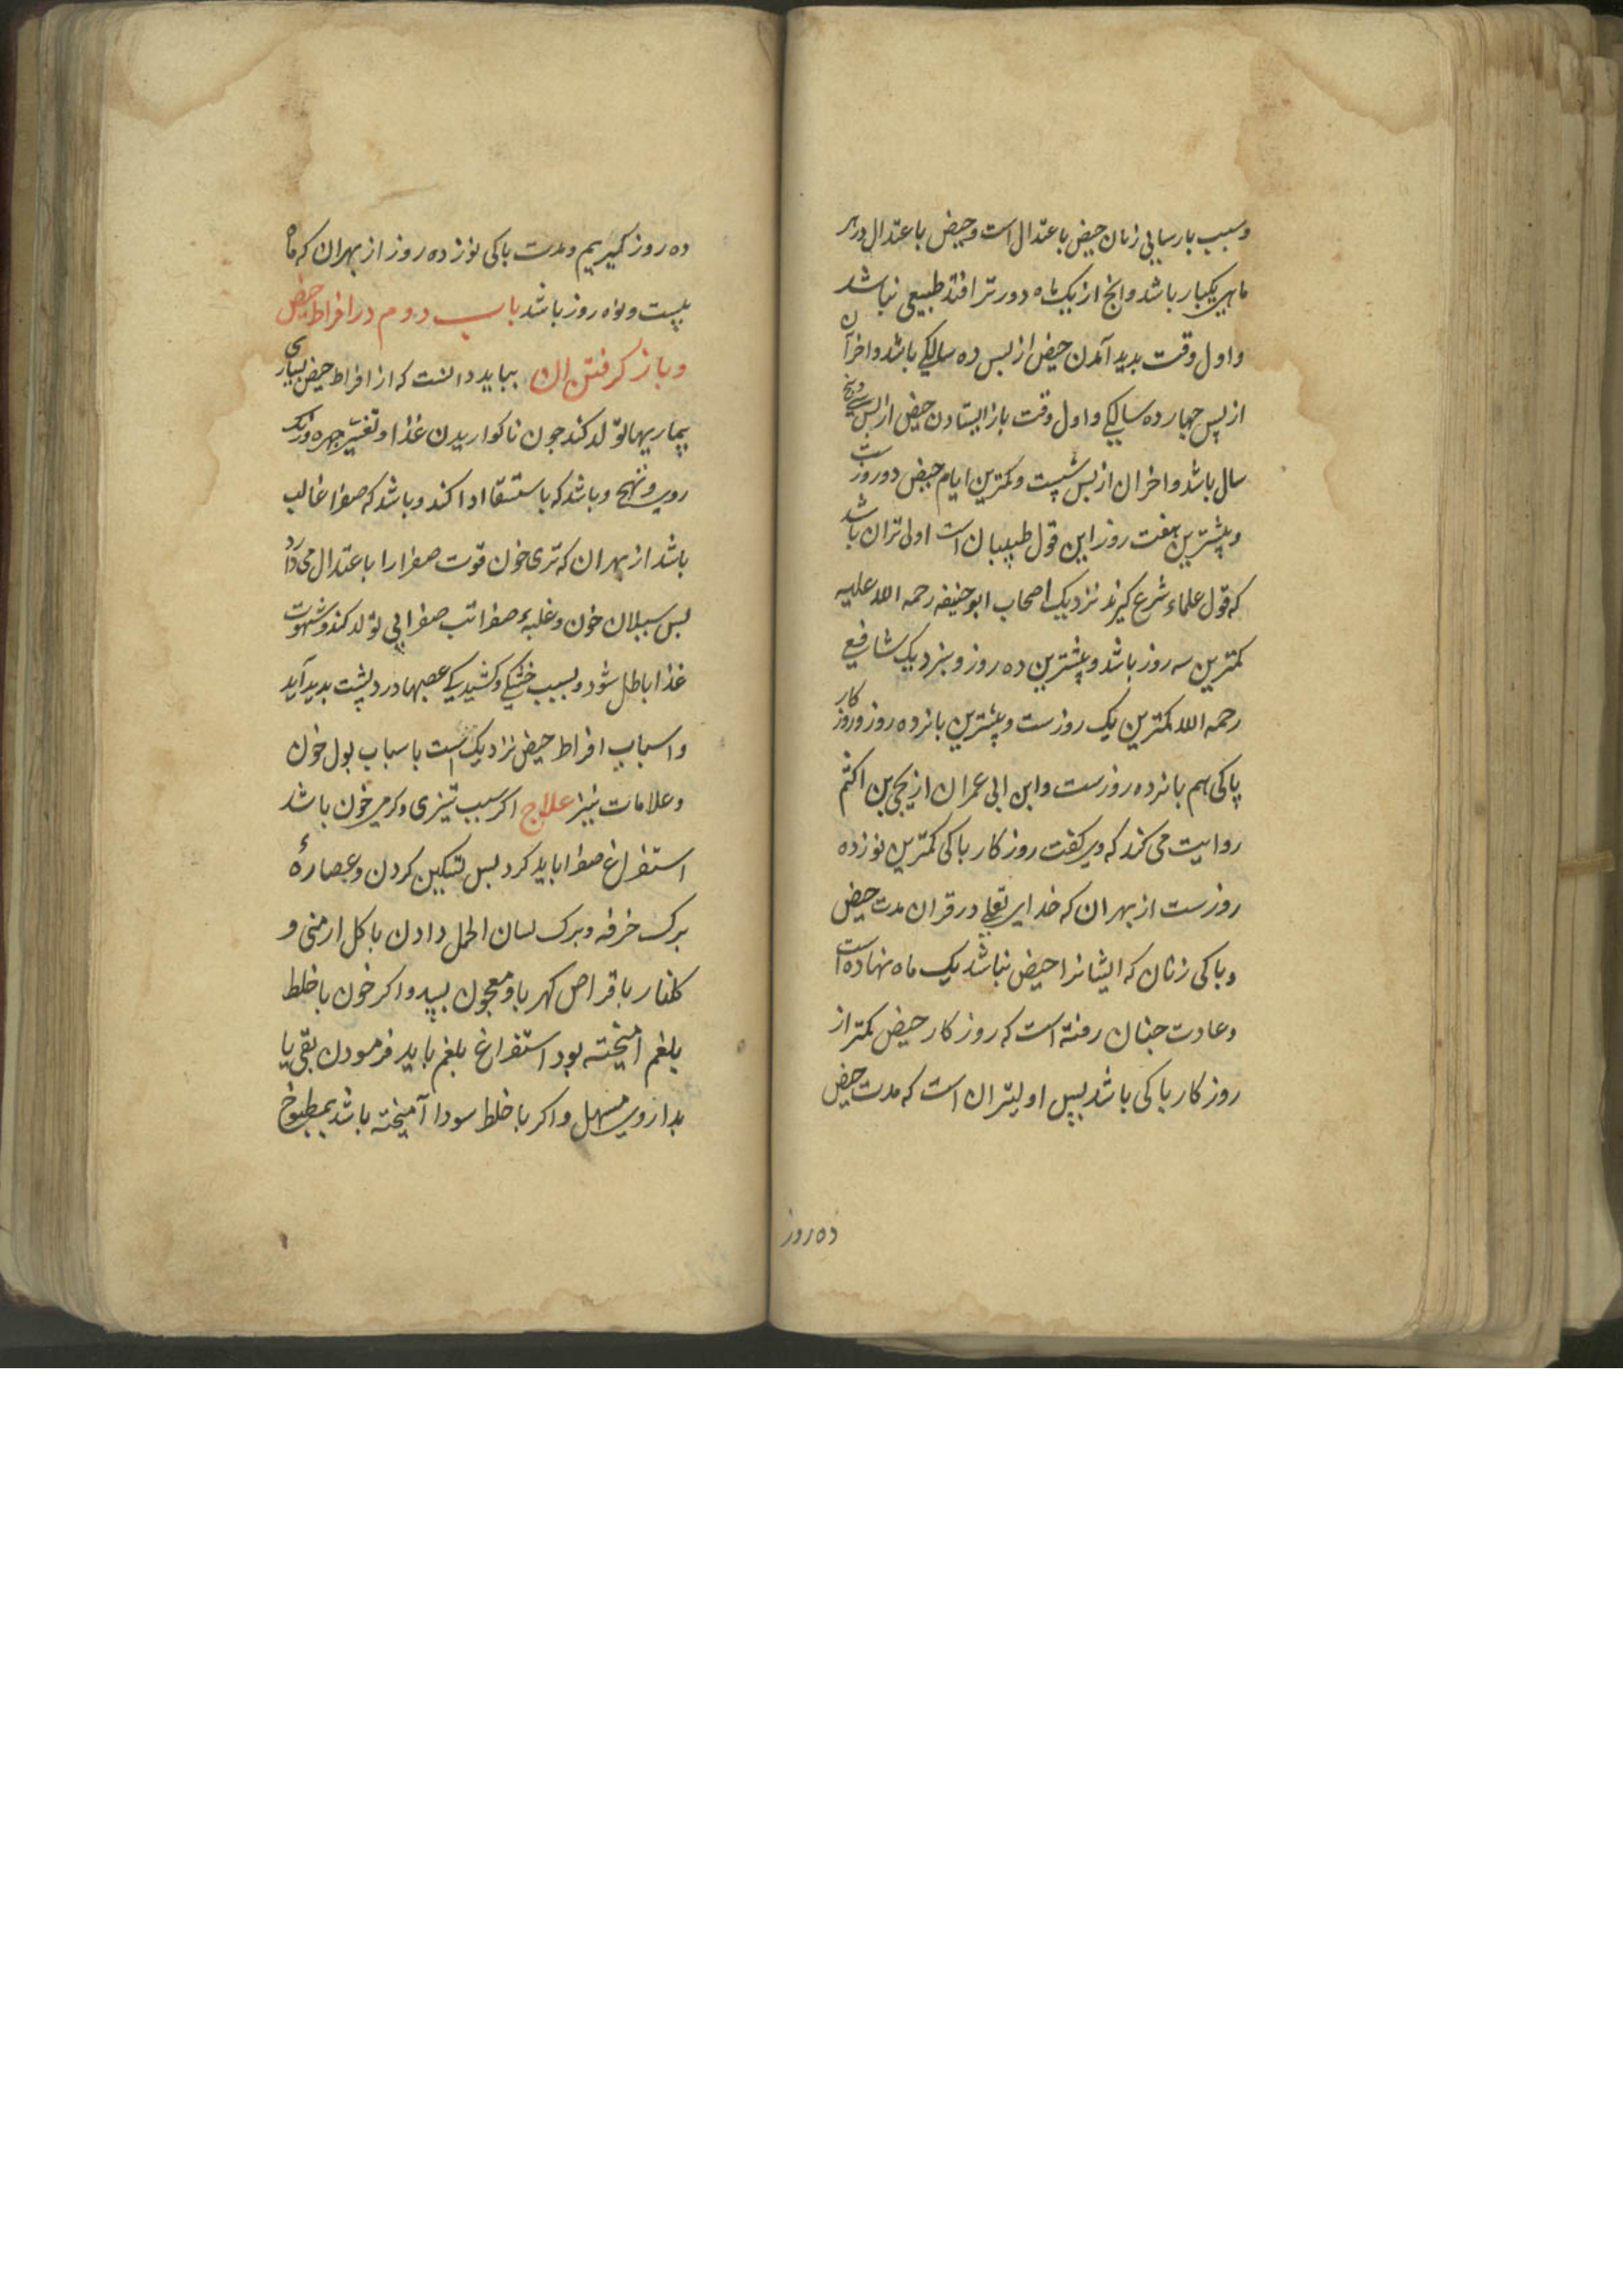 وسبب بارسایی زنان حیض باعتدال است وحیض باعتدال در هر
ماهی یکبار باشد وانج از یک ماه دورتر افتد طبیعی نباشد
واول وقت بدید آمدن حیض از بس ده سالکی باشد واخر آن
از پس جهارده سالکی واول وقت باز ایستادن حیض از بس سی وبنج
سال باشد واخر ان از بس شیست وکمترین ایام حیض دو روزست
وبیشترین هفت روز این قول طبیبان است اولی تر ان باشد
که قول علماء شرع کیرند نزدیک اصحاب ابو حنیفه رحمه الله علیه
کمترین سه روز باشد وبیشترین ده روز وبنزدیک شافیع
رحمه الله کمترین یک روزست وبیشترین بانزده روز وروزکار
پاکی هم بانزده روزست وابن ابی عمران از یحیی بن اکثم
روایت می کند که وی کفت روزکار باکی کمترین نوزده
روزست از بهر ان که خدای تعلی در قران مدت حیض
وباکی زنان که ایشانرا حیض نباشد یک ماه نهاده است
وعادت جنان رفته است که روزکار حیض کمتر از
روزکار باکی باشد بس اولیتر ان است که مدت حیض
ده روز
ده روز کیریم ومدت باکی نوزده روز از بهر ان که ماه
بیست ونه روز باشد باب دوم در افراط حیض
وباز کرفتن ان بباید دانست که از افراط حیض بسیاری
بیماریها تولد کند جون ناکواریدن غذا وتغیر جهره ورنک
روی وتهبج وباشد که باستسقا ادا کند وباشد که صفرا غالب
باشد از بهر ان که تری خون قوت صفرا را باعتدال می دارد
بس سیلان خون وغلبهٔ صفرا تب صفرایی تولد کند وشهوت
غذا باطل شود وبسبب خشکی وکشیدیکی عصبها درد پشت بدید آید
واسباب افراط حیض نزدیک است باسباب بول خون
وعلامات نیز علاج اکر سبب تیزی وکرمی خون باشد
استفراغ صفرا باید کرد بس تسکین کردن وعصارهٔ
برک خرفه وبرک لسان الحمل دادن با کل ارمنی و
کلنار باقراص کهربا ومعجون بسد واکر خون با خلط
بلغم آمیخته بود استفراغ بلغم باید فرمودن بقی یا
بداروی مسهل واکر با خلط سودا آمیخته باشد بمطبوخ